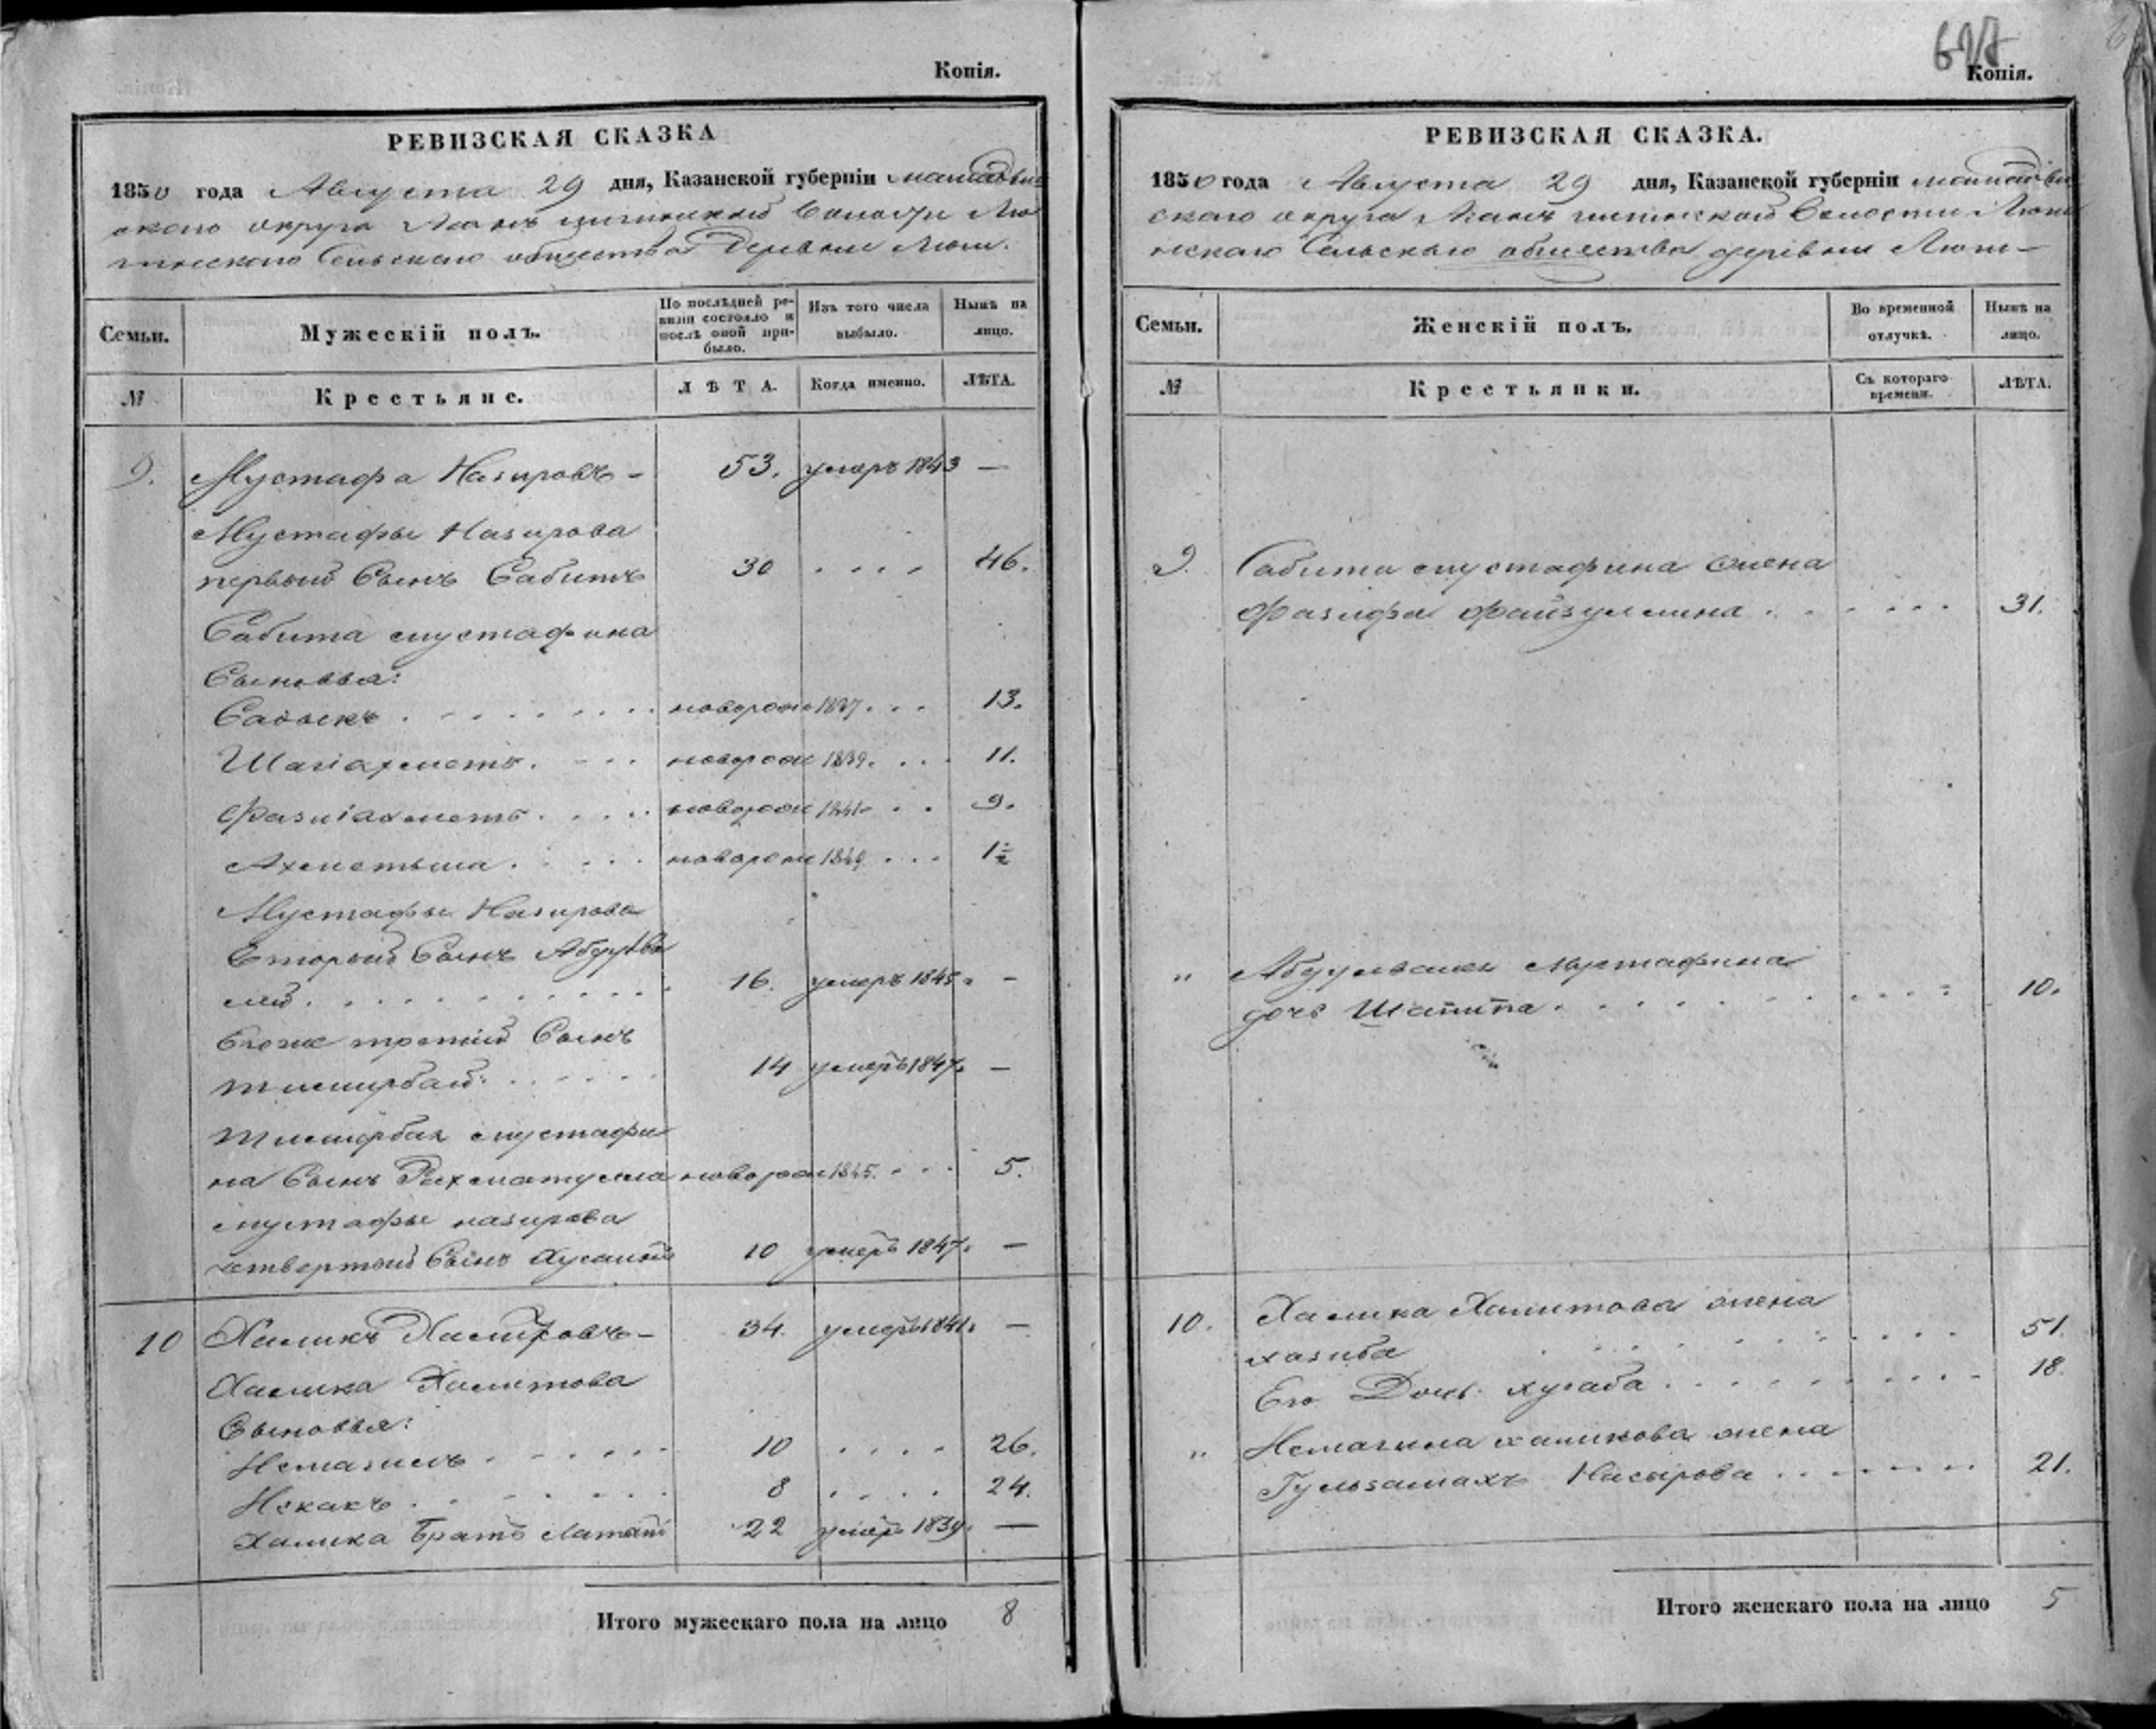 Копія.
РЕВИЗСКАЯ СКАЗКА
1850 года Августа 29 дня, Казанской губерніи мамадыш
скаго округа волости
Сельскаго общества Деревни
Семьи.
Мужескій полъ.
По послѣдней ре-
визіи состояло и
послѣ оной при-
было.
Изъ того числа
выбыло.
Нынѣ на
лицо.
№
Крестьяне.
ЛѢТА.
Когда именно.
ЛѢТА.
9. Мустафа Назировъ – 53. умеръ 1843 —
Мустафы Назирова
первый Сынъ Сабитъ 30 . . . . 46.
Сабита мустафина
Сыновья:
Садыкъ . . . . . . . . новорож 1837 . . . 13.
Шагіахметъ. . . . новорож 1839. . . . 11.
Фазліахметъ . . . . . новорож 1841. . . 9.
Ахметьша . . . . . новорож 1849. . . . 1½
Мустафы Назирова
Второй Сынъ Абдулва
лей . . . . . . . . . . . . 16. умеръ 1845. —
Егоже третій Сынъ
Тимирбай: . . . . . . 14 умеръ 1847. —
Тимирбая мустафи
на Сынъ Рахматулла новорож 1845. . . . 5.
мустафы назирова
четвертый Сынъ 10 умеръ 1847. —
10 Халикъ Хамитовъ – 34. умеръ 1841. —
Халика Хамитова
Сыновья:
Исмагилъ . . . . . . 10 . . . . 26.
Искакъ . . . . . . . 8 . . . . 24.
Халика Братъ 22 умеръ 1839. —
Итого мужескаго пола на лицо 8
Копія.
РЕВИЗСКАЯ СКАЗКА.
1850 года Августа 29 дня, Казанской губерніи мамадыш
скаго округа волости
Сельскаго общества деревни
Семьи.
Женскій полъ.
Во временной
отлучкѣ.
Нынѣ на
лицо.
№
Крестьянки.
Съ котораго
времени.
ЛѢТА.
9. Сабита мустафина жена
Фазифа Файзуллина . . . . . . . 31.
" Абдулвалея Мустафина
дочь Шапипа . . . . . . . . . . . 10.
10. Халика Хамитова жена
хазиба . . . . . . . . . 51.
Его Дочь . . . . . . . . . . . 18.
" Исмагила халикова жена
Насырова . . . . . . . 21.
Итого женскаго пола на лицо 5